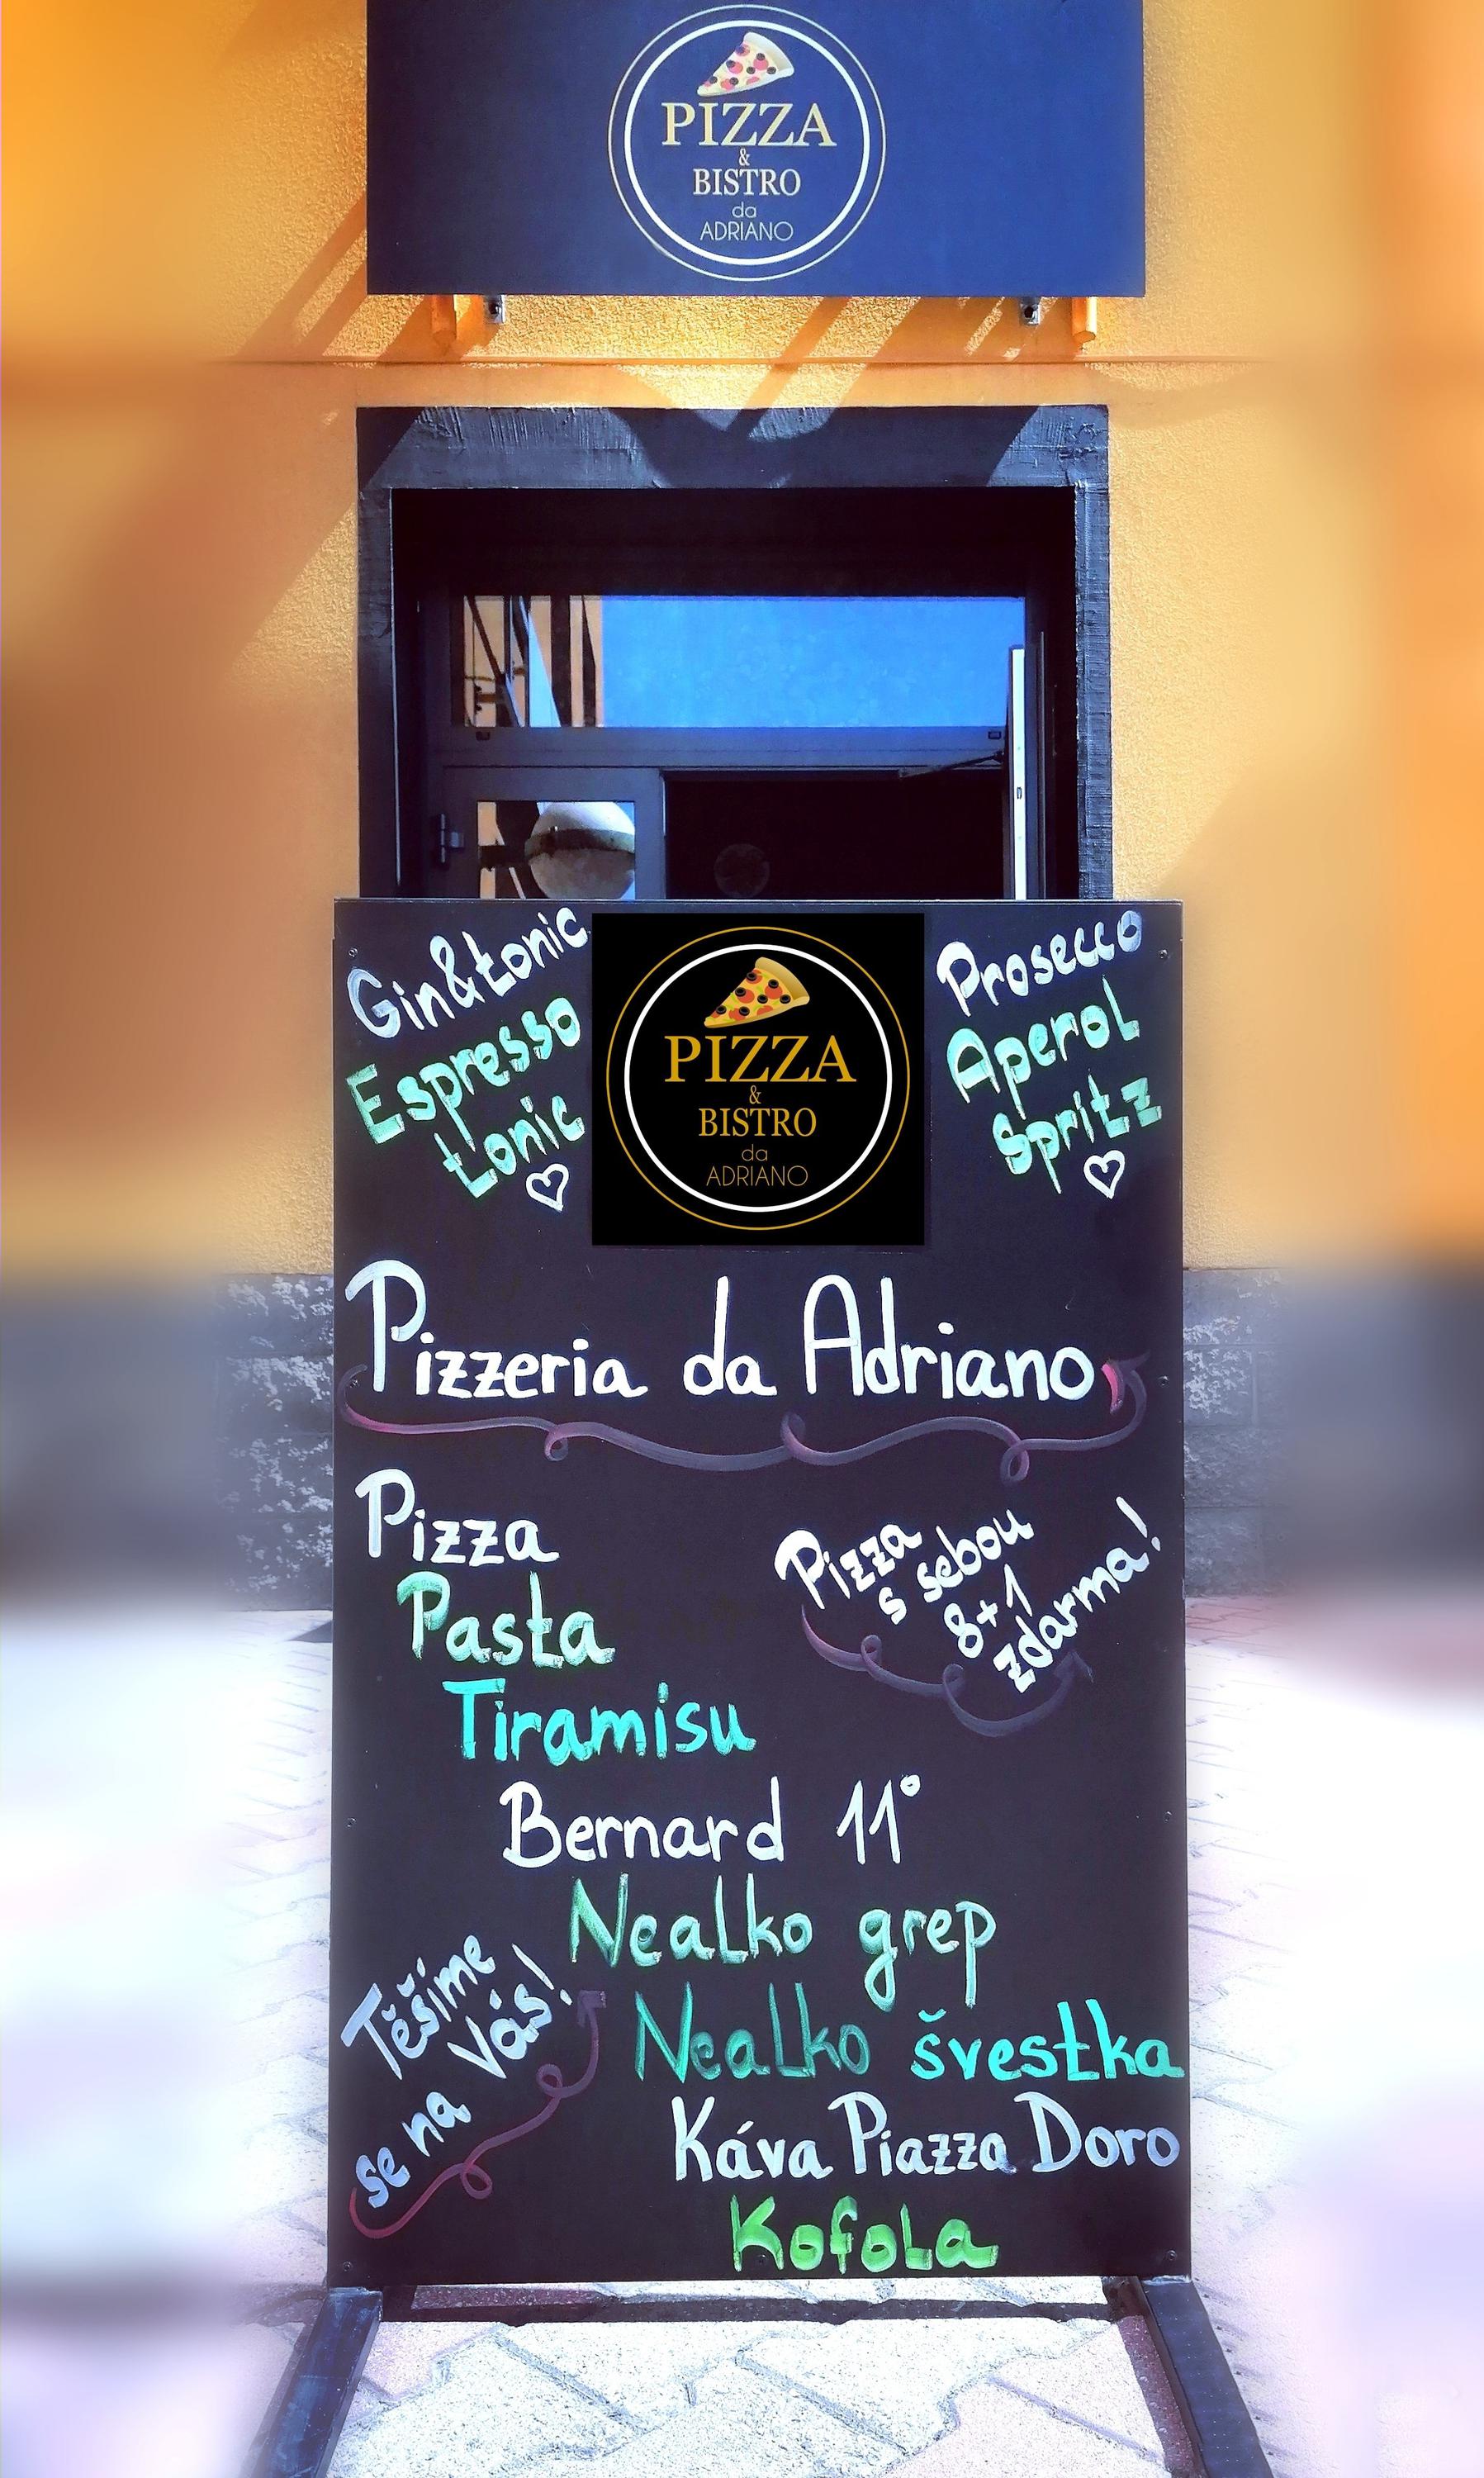 PIZZA
&
BISTRO
da
ADRIANO
Gin&tonic
Espresso
tonic
PIZZA
&
BISTRO
da
ADRIANO
Prosecco
Aperol
Spritz
Pizzeria da Adriano
Pizza
Pasta
Tiramisu
Pizza
s sebou
8+1
zdarma!
Bernard 11°
Nealko grep
Nealko švestka
Káva Piazza Doro
Kofola
Těšíme
se na Vás!